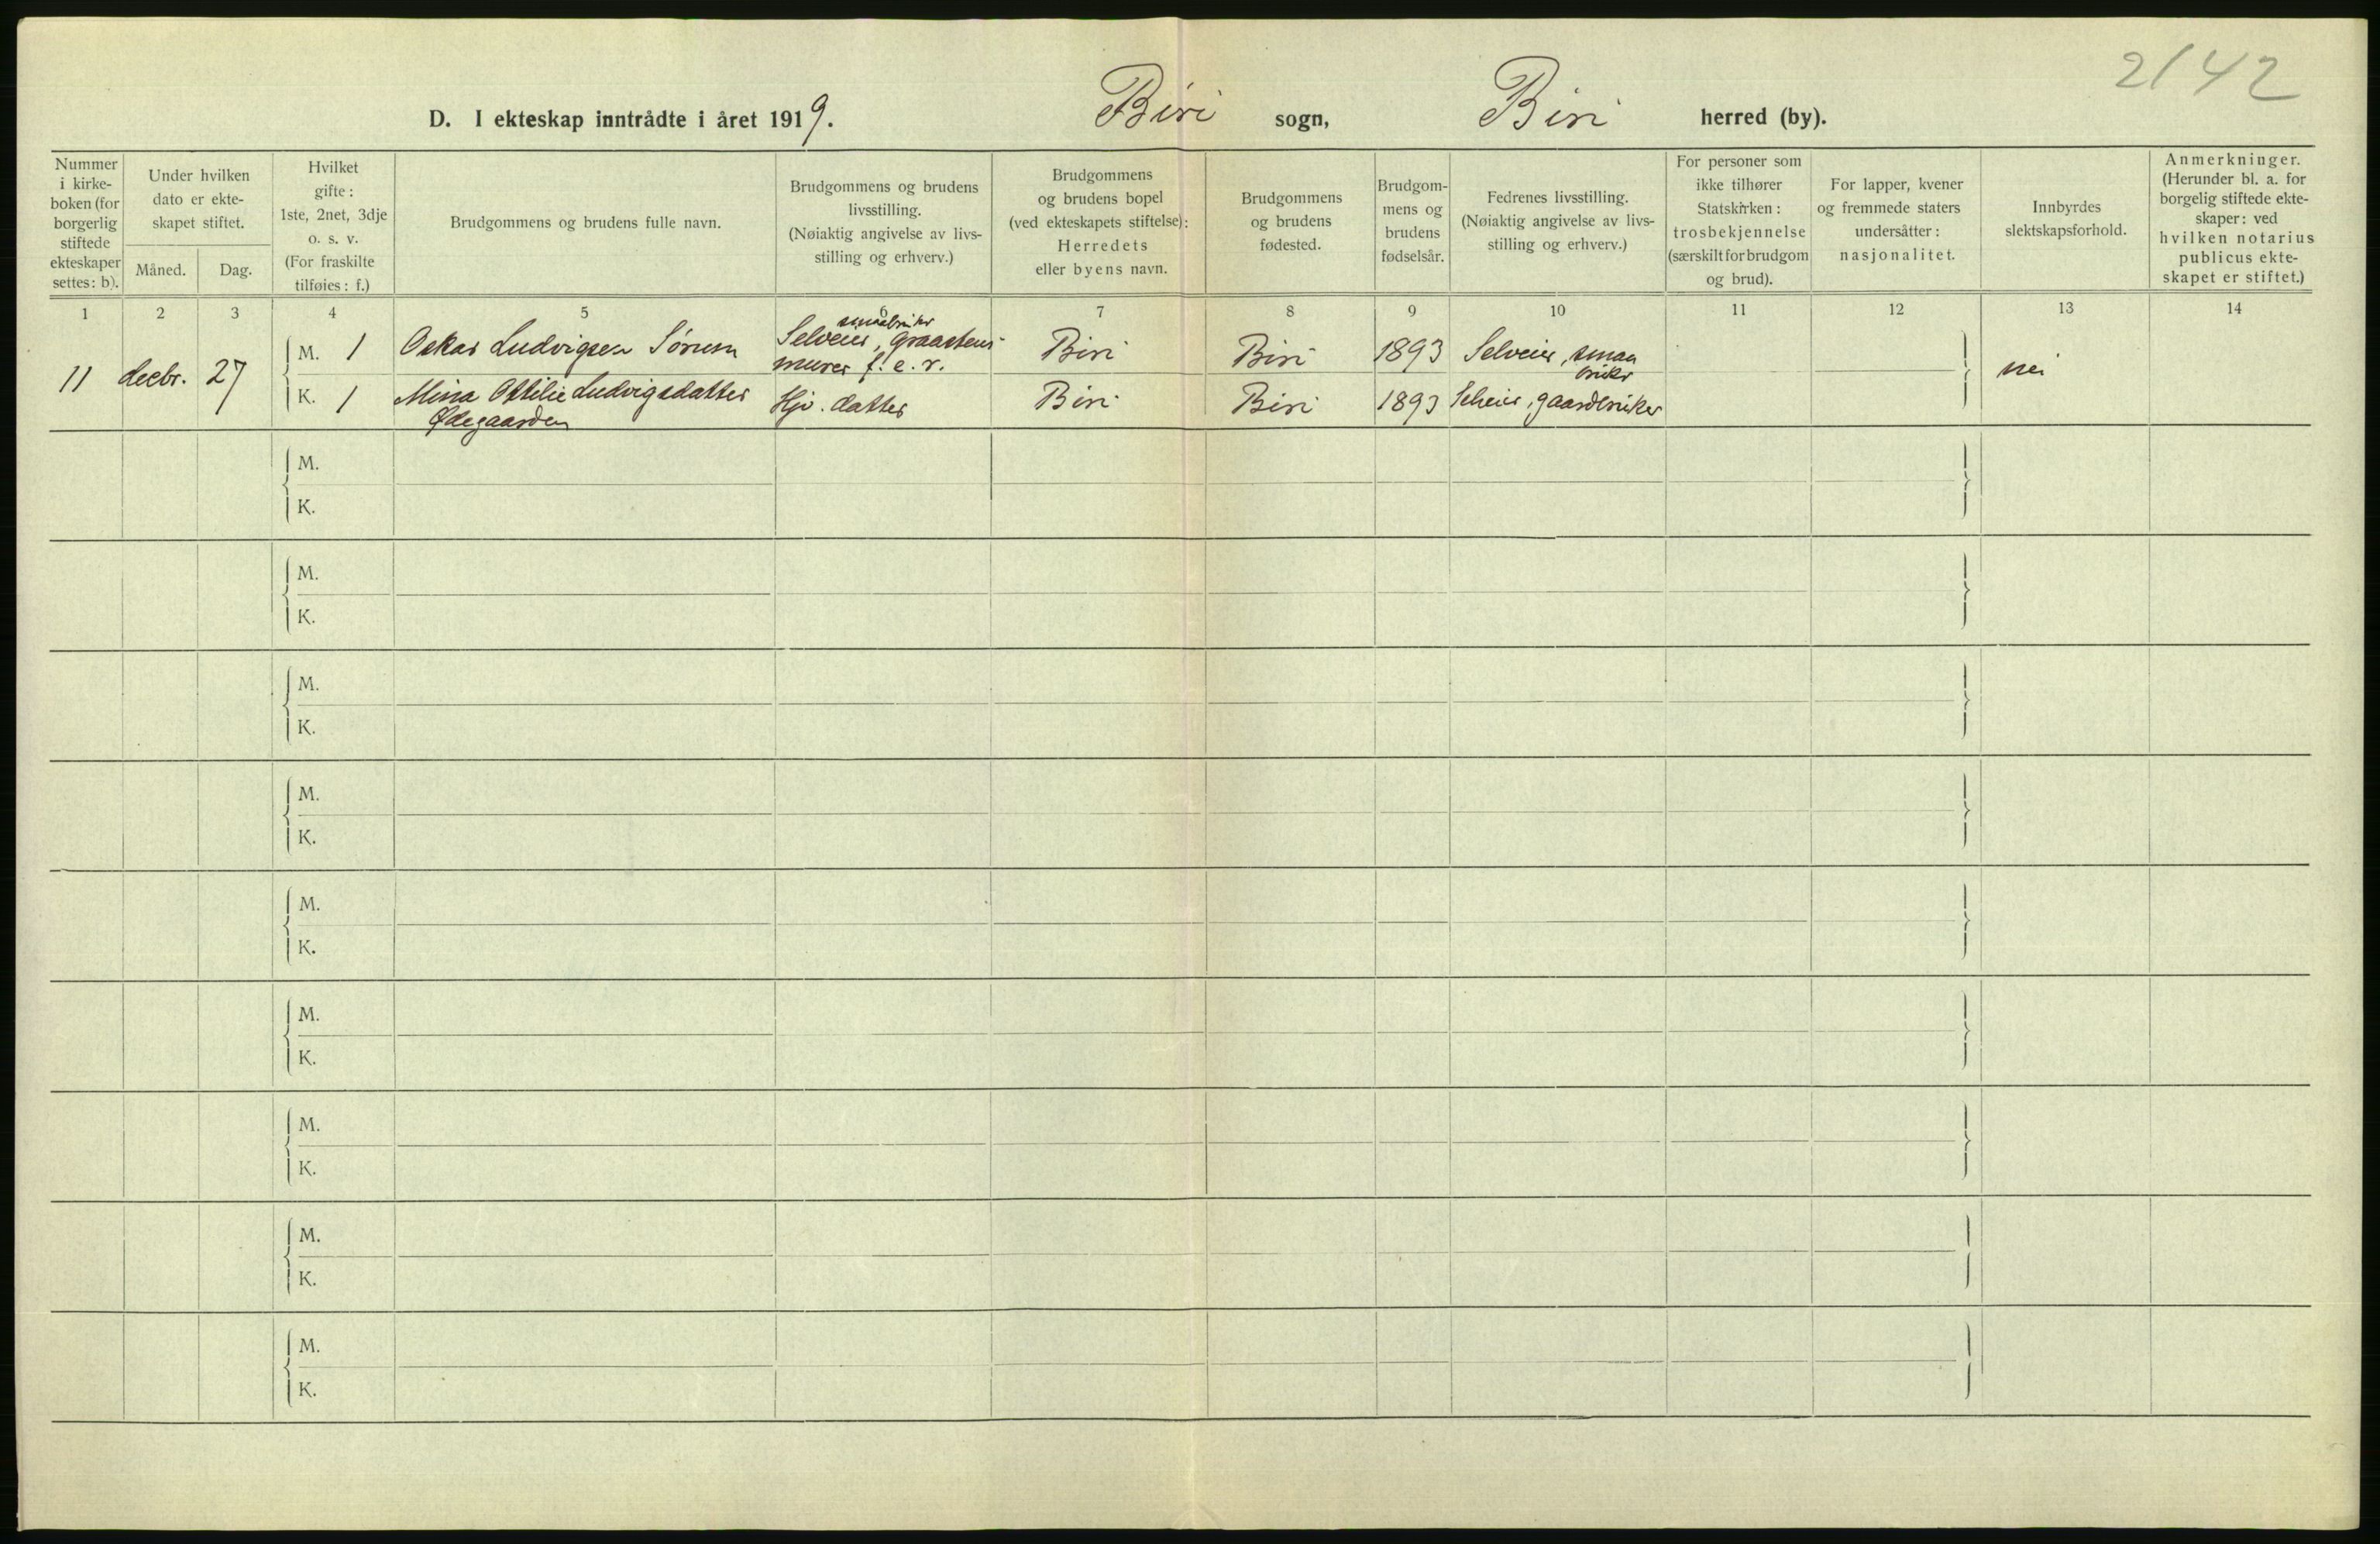 2142
D. I ekteskap inntrådte i året 1919. Biri sogn, Biri herred (by).
Nummer i kirkeboken (for borgerlig stiftede ekteskaper settes: b).
Under hvilken dato er ekteskapet stiftet.
Måned. Dag.
Hvilket gifte: 1ste, 2net, 3dje o. s. v. (For fraskilte tilføies: f.)
Brudgommens og brudens fulle navn.
Brudgommens og brudens livsstilling. (Nøiaktig angivelse av livsstilling og erhverv.)
Brudgommens og brudens bopel (ved ekteskapets stiftelse): Herredets eller byens navn.
Brudgommens og brudens fødested.
Brudgommens og brudens fødselsår.
Fedrenes livsstilling. (Nøiaktig angivelse av livsstilling og erhverv.)
For personer som ikke tilhører Statskirken: trosbekjennelse (særskilt for brudgom og brud).
For lapper, kvener og fremmede staters undersåtter: nasjonalitet.
Innbyrdes slektskapsforhold.
Anmerkninger. (Herunder bl. a. for borgelig stiftede ekteskaper: ved hvilken notarius publicus ekteskapet er stiftet.)
1 2 3 4 5 6 7 8 9 10 11 12 13 14
11 decbr. 27
M. 1 Oskar Ludvigsen Sørum Selveier, småbruker graastensmurer f. e. r. Biri Biri 1893 Selveier, smaabruker nei
K. 1 Mina Ottilie Ludvigsdatter Ødegaarden Hjv. datter Biri Biri 1893 Selveier, gaardbruker
M.
K.
M.
K.
M.
K.
M.
K.
M.
K.
M.
K.
M.
K.
M.
K.
M.
K.